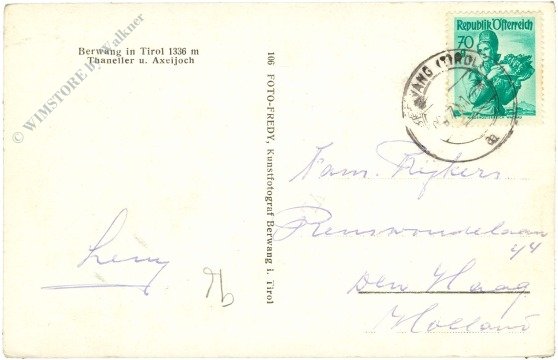 Berwang in Tirol 1336 m
Thaneller u. Axeljoch
© WIMSTORE by Walkner
106 FOTO-FREDY, Kunstfotograf Berwang i. Tirol
Republik Österreich
70
BERWANG (TIROL)
a
Fam. Rijkers
44
Den Haag
Holland